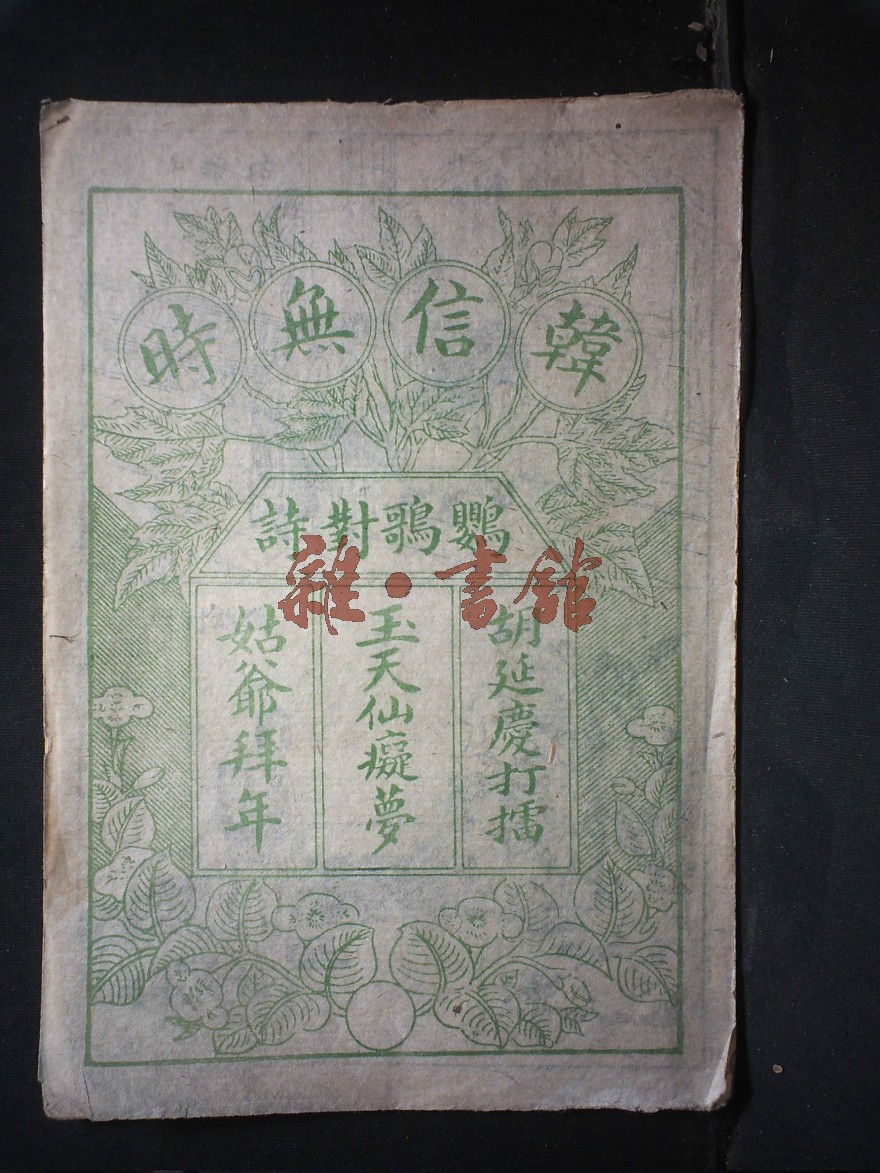 韓信無時
鸚鵡對詩
胡延慶打擂
玉天仙癡夢
姑爺拜年
雜·書館